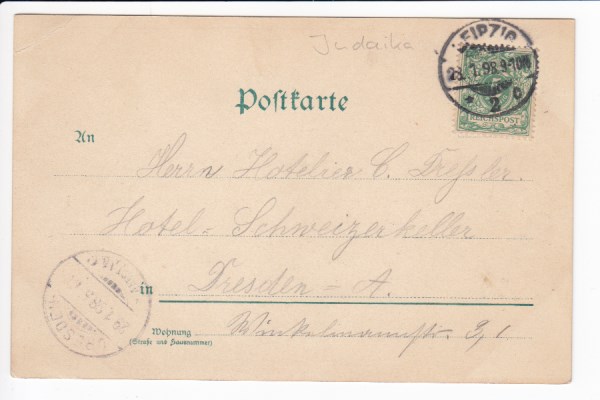 Judaika
LEIPZIG
29.1.98.9-10N
* 2 c
REICHSPOST
Postkarte
An
Herrn Hotelier C. Dressler.
Hotel-Schweizerkeller
in Dresden-A.
Wohnung
(Straße und Hausnummer)
Winkelmannstr. 3, I.
DRESDEN